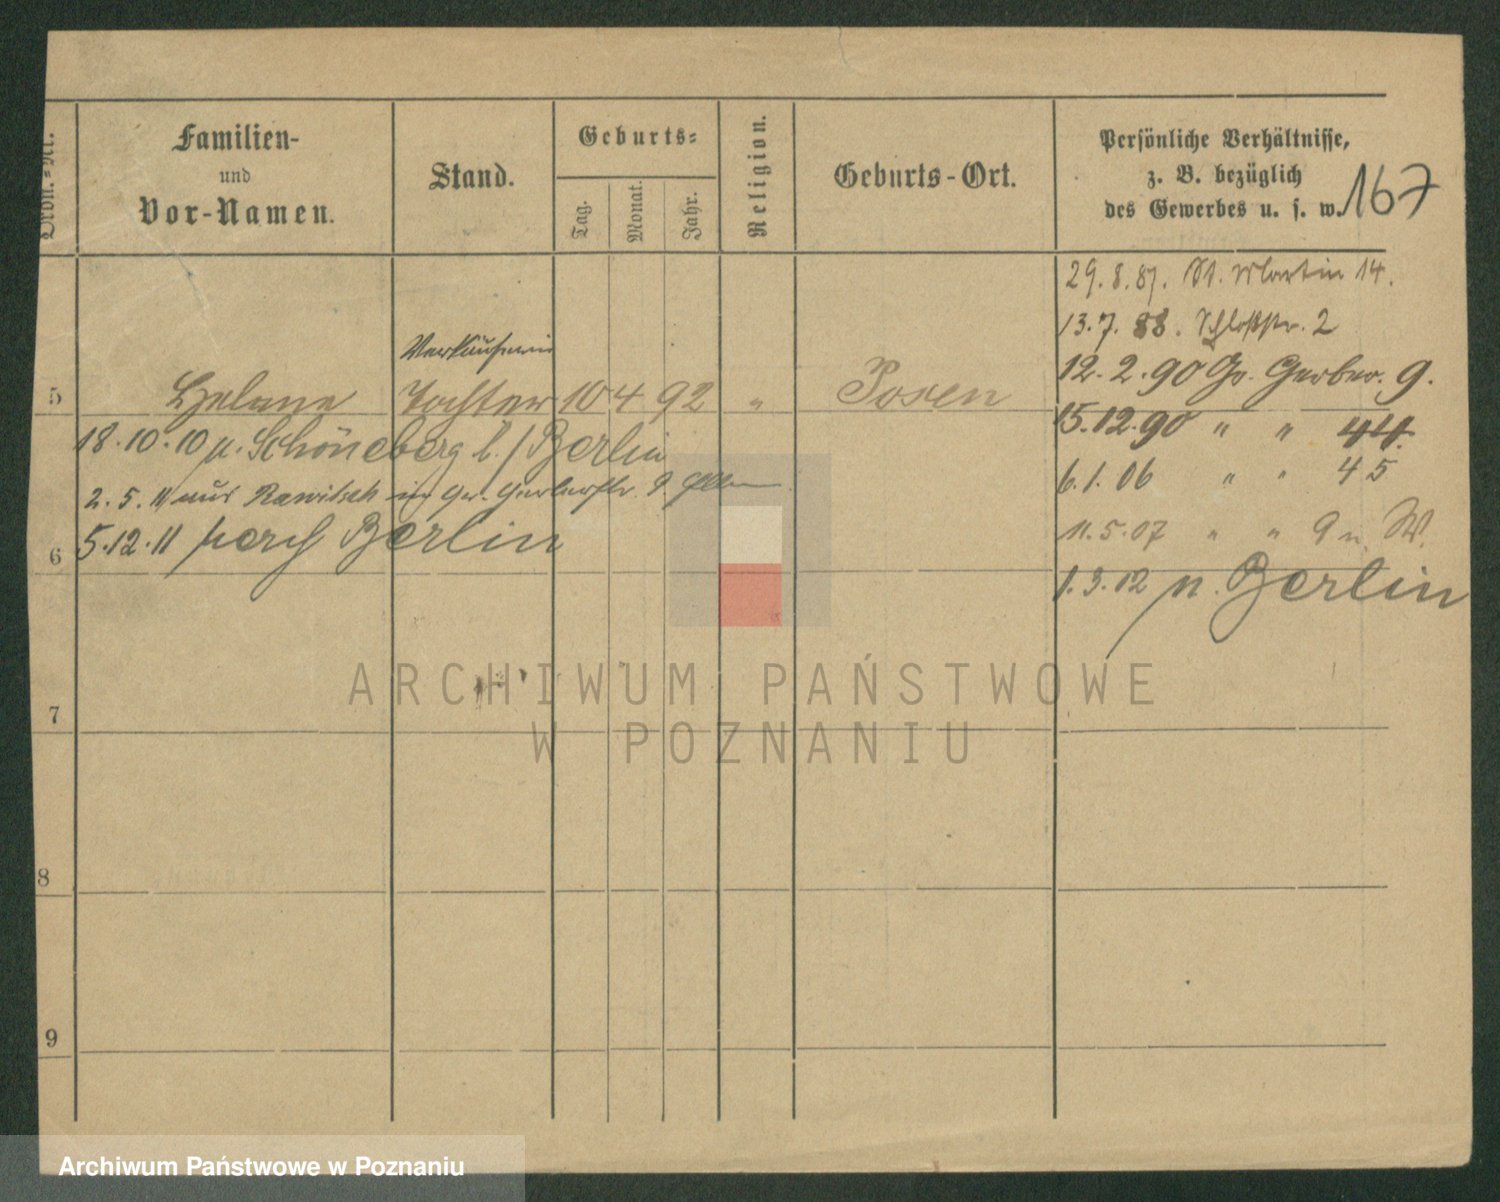 Ordn.=Nr.
Familien-
und
Vor-Namen.
Stand.
Geburts=
Tag.
Monat.
Jahr.
Religion.
Geburts-Ort.
Persönliche Verhältnisse,
z. B. bezüglich
des Gewerbes u. s. w.
167
29.8.87. St. Martin 14.
13.7.88. Schloßstr. 2
12.2.90 Gr. Gerber. 9.
15.12.90 " " 44.
6.1.06 " " 45
11.5.07 " " 9 n. W.
1.3.12 n. Berlin
Verkäuferin
5 Helene Tochter 10 4 92 " Posen
18.10.10 n. Schöneberg b./Berlin
2.5.11 aus Rawitsch in Gr. Gerberstr. 9
5.12.11 nach Berlin
6
7
8
9
ARCHIWUM PAŃSTWOWE
W POZNANIU
Archiwum Państwowe w Poznaniu